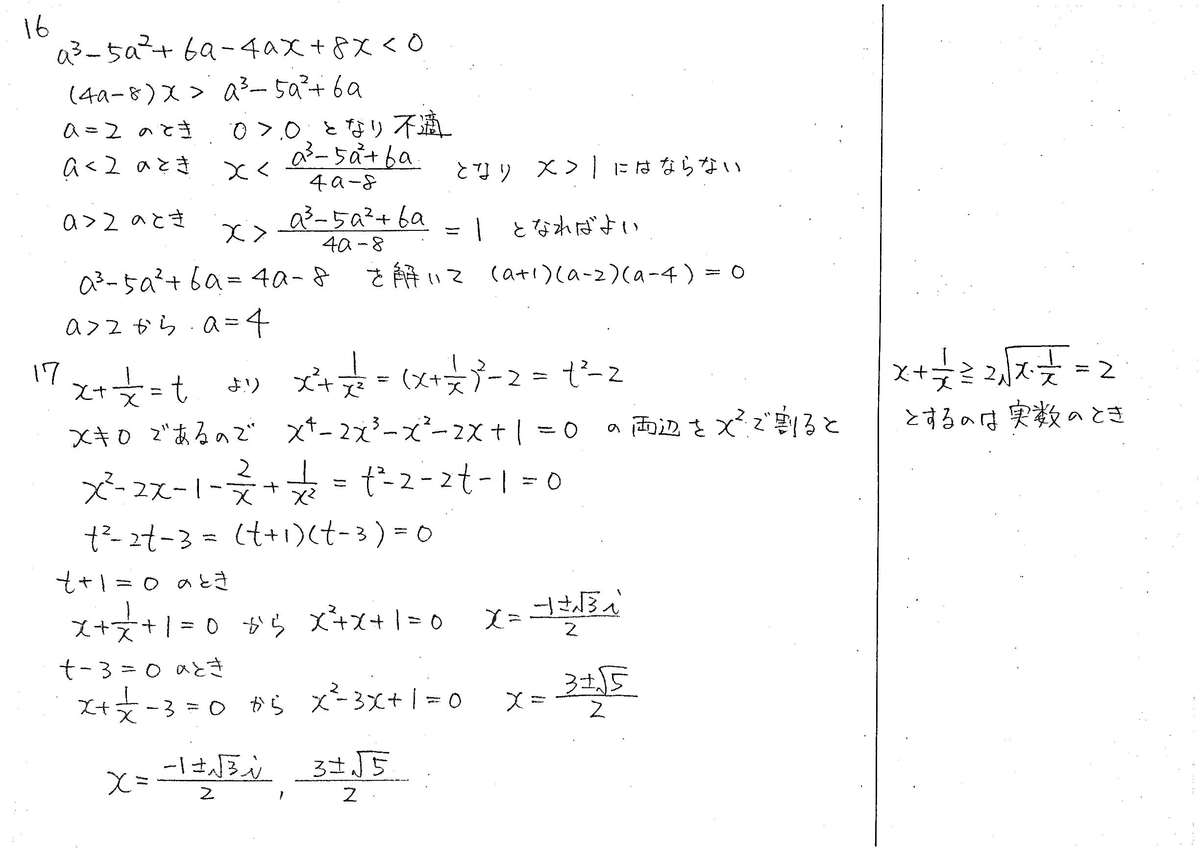 16
a³-5a²+6a-4ax+8x<0
(4a-8)x > a³-5a²+6a
a=2 のとき 0>0 となり不適
a<2 のとき x < (a³-5a²+6a)/(4a-8) となり x>1 にはならない
a>2 のとき x > (a³-5a²+6a)/(4a-8) = 1 となればよい
a³-5a²+6a = 4a-8 を解いて (a+1)(a-2)(a-4)=0
a>2 から a=4
17
x+1/x=t より x²+1/x² = (x+1/x)²-2 = t²-2
x≠0 であるので x⁴-2x³-x²-2x+1=0 の両辺を x² で割ると
x²-2x-1-2/x+1/x² = t²-2-2t-1=0
t²-2t-3 = (t+1)(t-3)=0
t+1=0 のとき
x+1/x+1=0 から x²+x+1=0 x=(-1±√3i)/2
t-3=0 のとき
x+1/x-3=0 から x²-3x+1=0 x=(3±√5)/2
x=(-1±√3i)/2, (3±√5)/2
x+1/x≧2√(x・1/x)=2
とするのは実数のとき